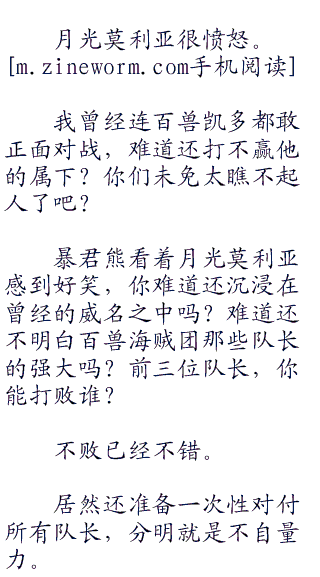 月光莫利亚很愤怒。
[m.zineworm.com手机阅读]
我曾经连百兽凯多都敢
正面对战，难道还打不赢他
的属下？你们未免太瞧不起
人了吧？
暴君熊看着月光莫利亚
感到好笑，你难道还沉浸在
曾经的威名之中吗？难道还
不明白百兽海贼团那些队长
的强大吗？前三位队长，你
能打败谁？
不败已经不错。
居然还准备一次性对付
所有队长，分明就是不自量
力。